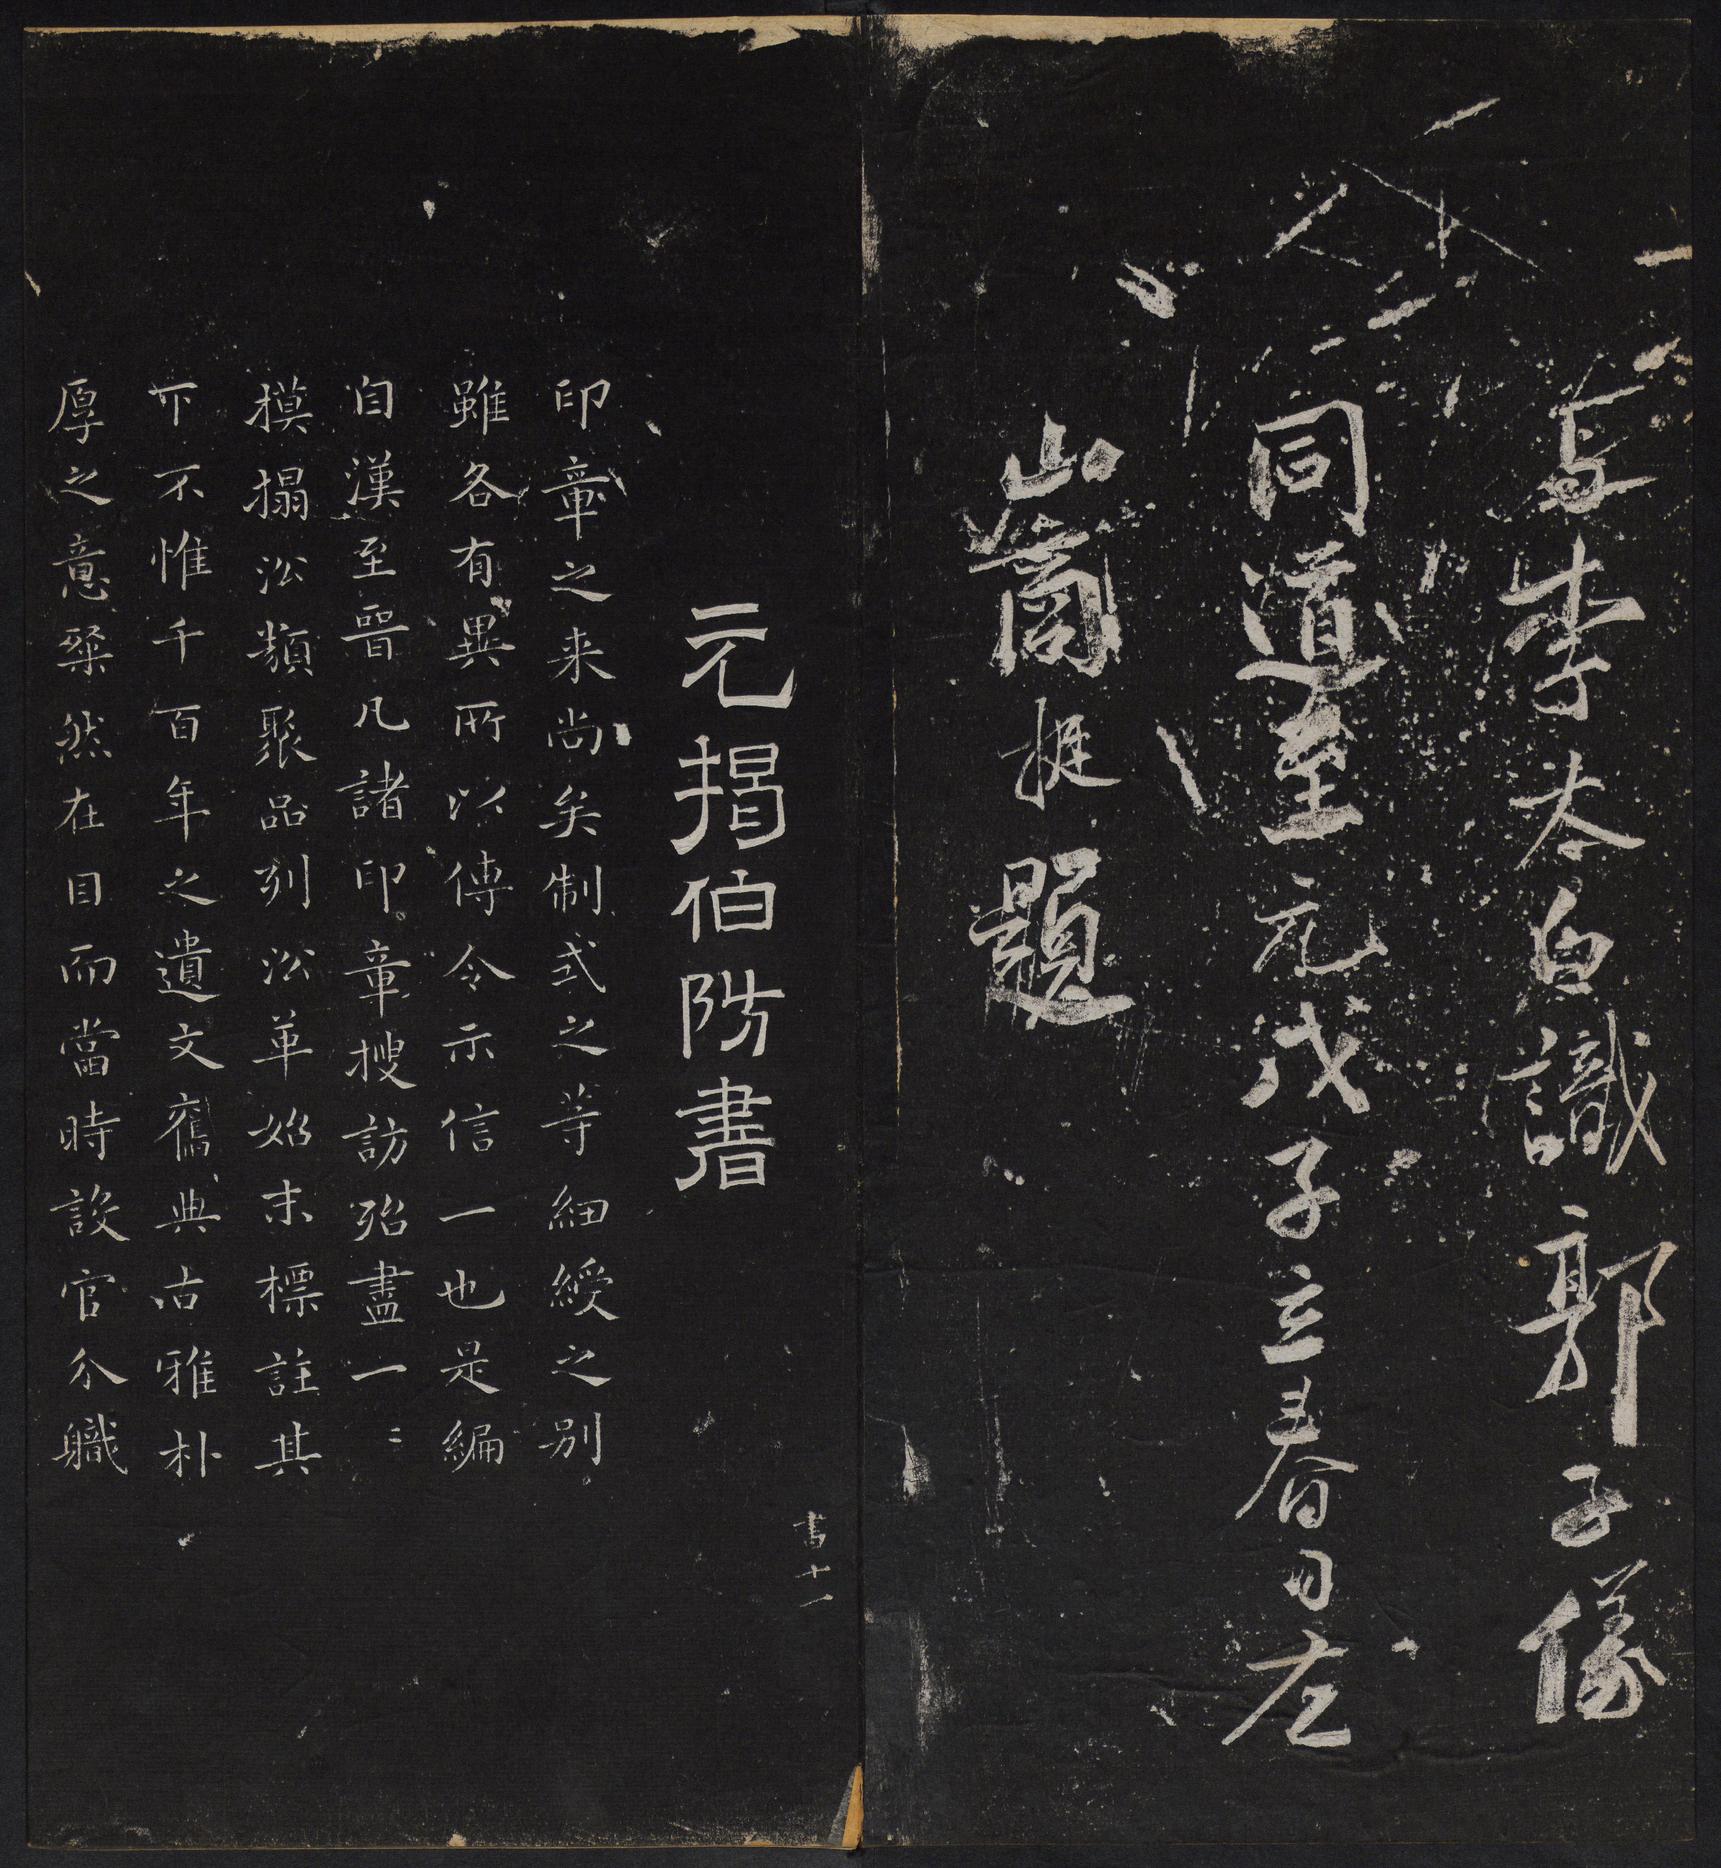 與李太白識郭子儀
同道至元戊子立春日左
山商挺題
元揭伯防書
書十一
印章之来尚矣制式之等細綬之別
雖各有異所以傳令示信一也是編
自漢至晉凡諸印章搜訪殆盡一〻
摸搨㳂類聚品列㳂革始末標註其
下不惟千百年之遺文舊典古雅朴
厚之意粲然在目而當時設官分職